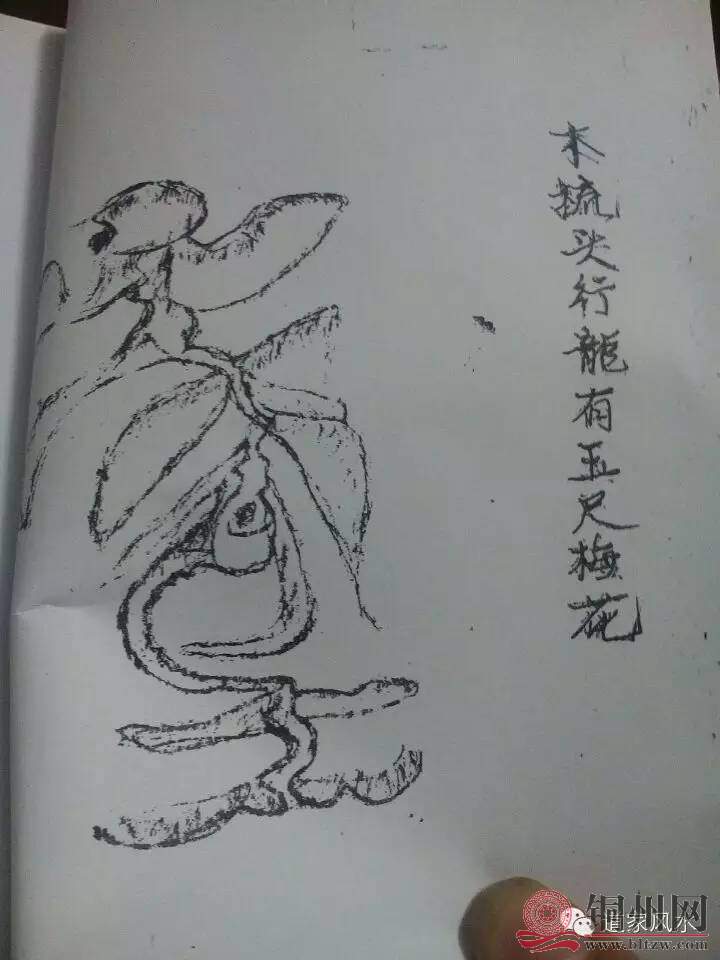 木梳头行龍有玉尺梅花
铜州网
道家风水
www.bltzw.com